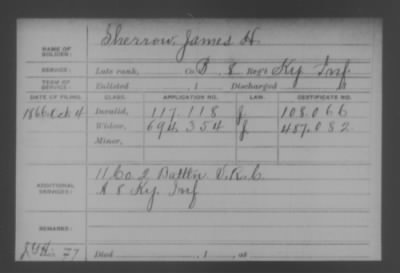 NAME OF SOLDIER: Sherrow, James H.
SERVICE: Late rank, Co B, 8 Reg't Ky. Inf
TERM OF SERVICE: Enlisted , 1 Discharged , 1
DATE OF FILING. CLASS. APPLICATION NO. LAW. CERTIFICATE NO.
1866 Oct 4 Invalid, 117.118 108.066
Widow, 694.354 487.082
Minor,
ADDITIONAL SERVICES: 11 Co. 2 Batt'n V.R.C.
A 8 Ky. Inf
REMARKS:
Died , 1 , at